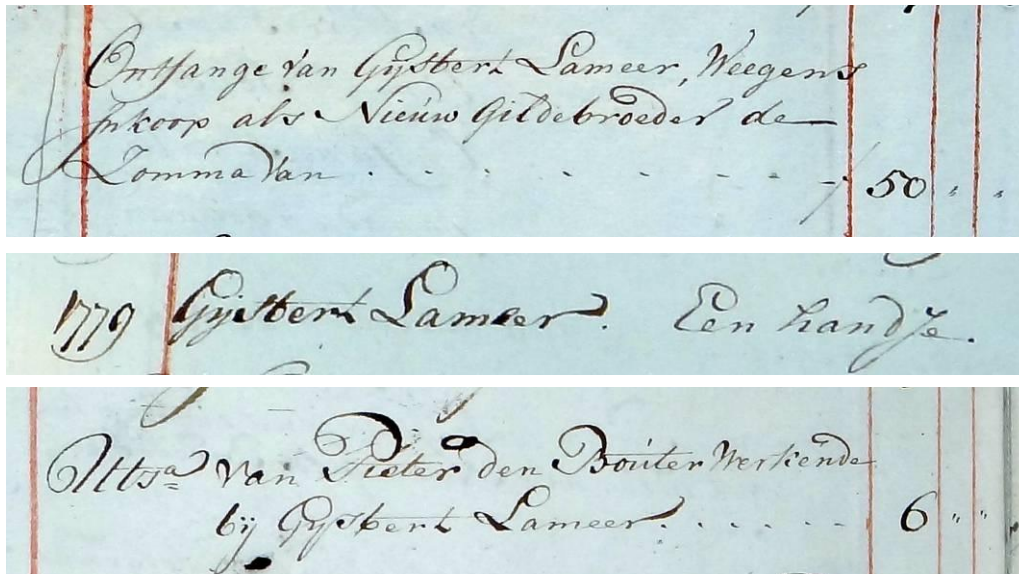 Ontfange van Gijsbert Lameer, Weegens
Inkoop als Nieuw Gildebroeder de
Zomma Van . . . . . . - - - f 50 " "
1779 Gijsbert Lameer. Een handje.
van Pieter den Bouter Werkende
bij Gijsbert Lameer. . . . . - - - 6 " "